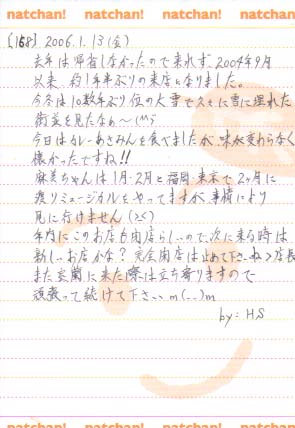 natchan! natchan! natchan! natchan!
[158] 2006.1.13(金)
去年は帰省しなかったので来れず、2004年9月
以来、約1年半ぶりの来店となりました。
今冬は10数年ぶり位の大雪で久々に雪に埋れた
街並を見たなぁ〜(^^)
今日はカレーあさみんを食べましたが、味が変わらなく
懐かったですね!!
麻美ちゃんは1月・2月と福岡・東京で2ヶ月に
渡りミュージカルをやってますが、事情により
見に行けません(>_<)
年内にこのお店も閉店らしいので、次に来る時は
新しいお店かな?完全閉店は止めて下さいね>店長
また室蘭に来た際は立ち寄りますので
頑張って続けて下さいm(_ _)m
by: H.S
natchan! natchan! natchan! natchan!